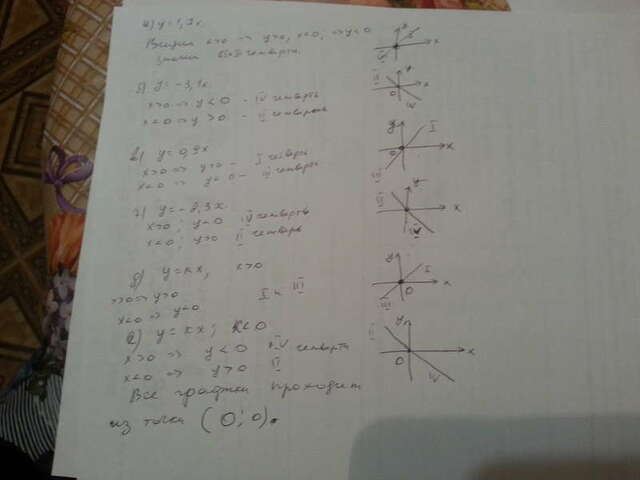 а) y = 1,7x.
x>0 => y>0, x<0, => y<0
знаки I и III четверти.
б) y = -3,1x.
x>0 => y<0 - IV четверть
x<0 => y>0 - II четверть
в) y = 0,9x
x>0 => y>0 - I четверть
x<0 => y<0 - III четверть
г) y = -2,3x.
x>0; y<0 IV четверть
x<0; y>0 II четверть
д) y = kx, k>0
x>0 => y>0
x<0 => y<0 I и III
е) y = kx; k<0
x>0 => y<0 IV четверть
x<0 => y>0 II
Все графики проходит
из точки (0; 0).